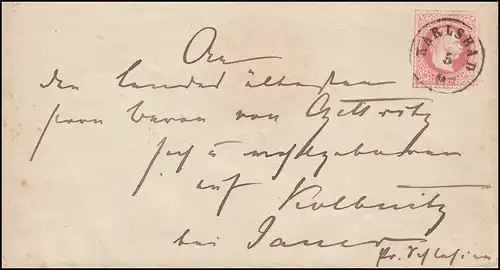 An
den Landes ältesten
Herrn Baron von Czettritz
Hoch u wohlgeboren
auf Kolbnitz
bei Jauer
Pr. Schlesien
KARLSBAD
5